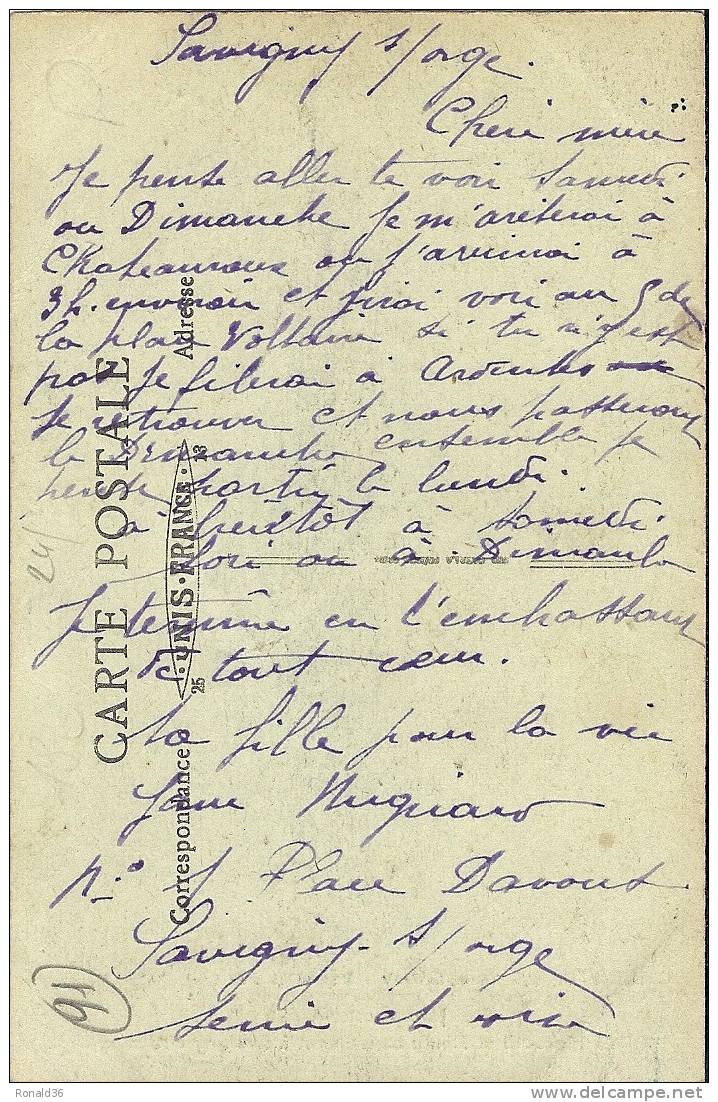 Savigny s/orge.
Cheri mère
Je pense aller te voir Samedi
ou Dimanche Je m'arêterai à
Chateauroux ou j'arriverai à
3h. environ et j'irai voir au 5 de
la place Voltaire si tu n'y est
pas Je filerai à Ardentes
te retrouver et nous passerons
le Dimanche ensemble je
pense partir le lundi.
à bientôt à Samedi
soir ou à Dimanche
Je termine en t'embrassant
de tout cœur.
Ta fille pour la vie
Mignard
n.° 5 Place Davout
Savigny s/orge
Seine et oise
CARTE POSTALE
Correspondance
Adresse
UNIS-FRANCE
25
13
24/
91
Ronald36
www.delcampe.net